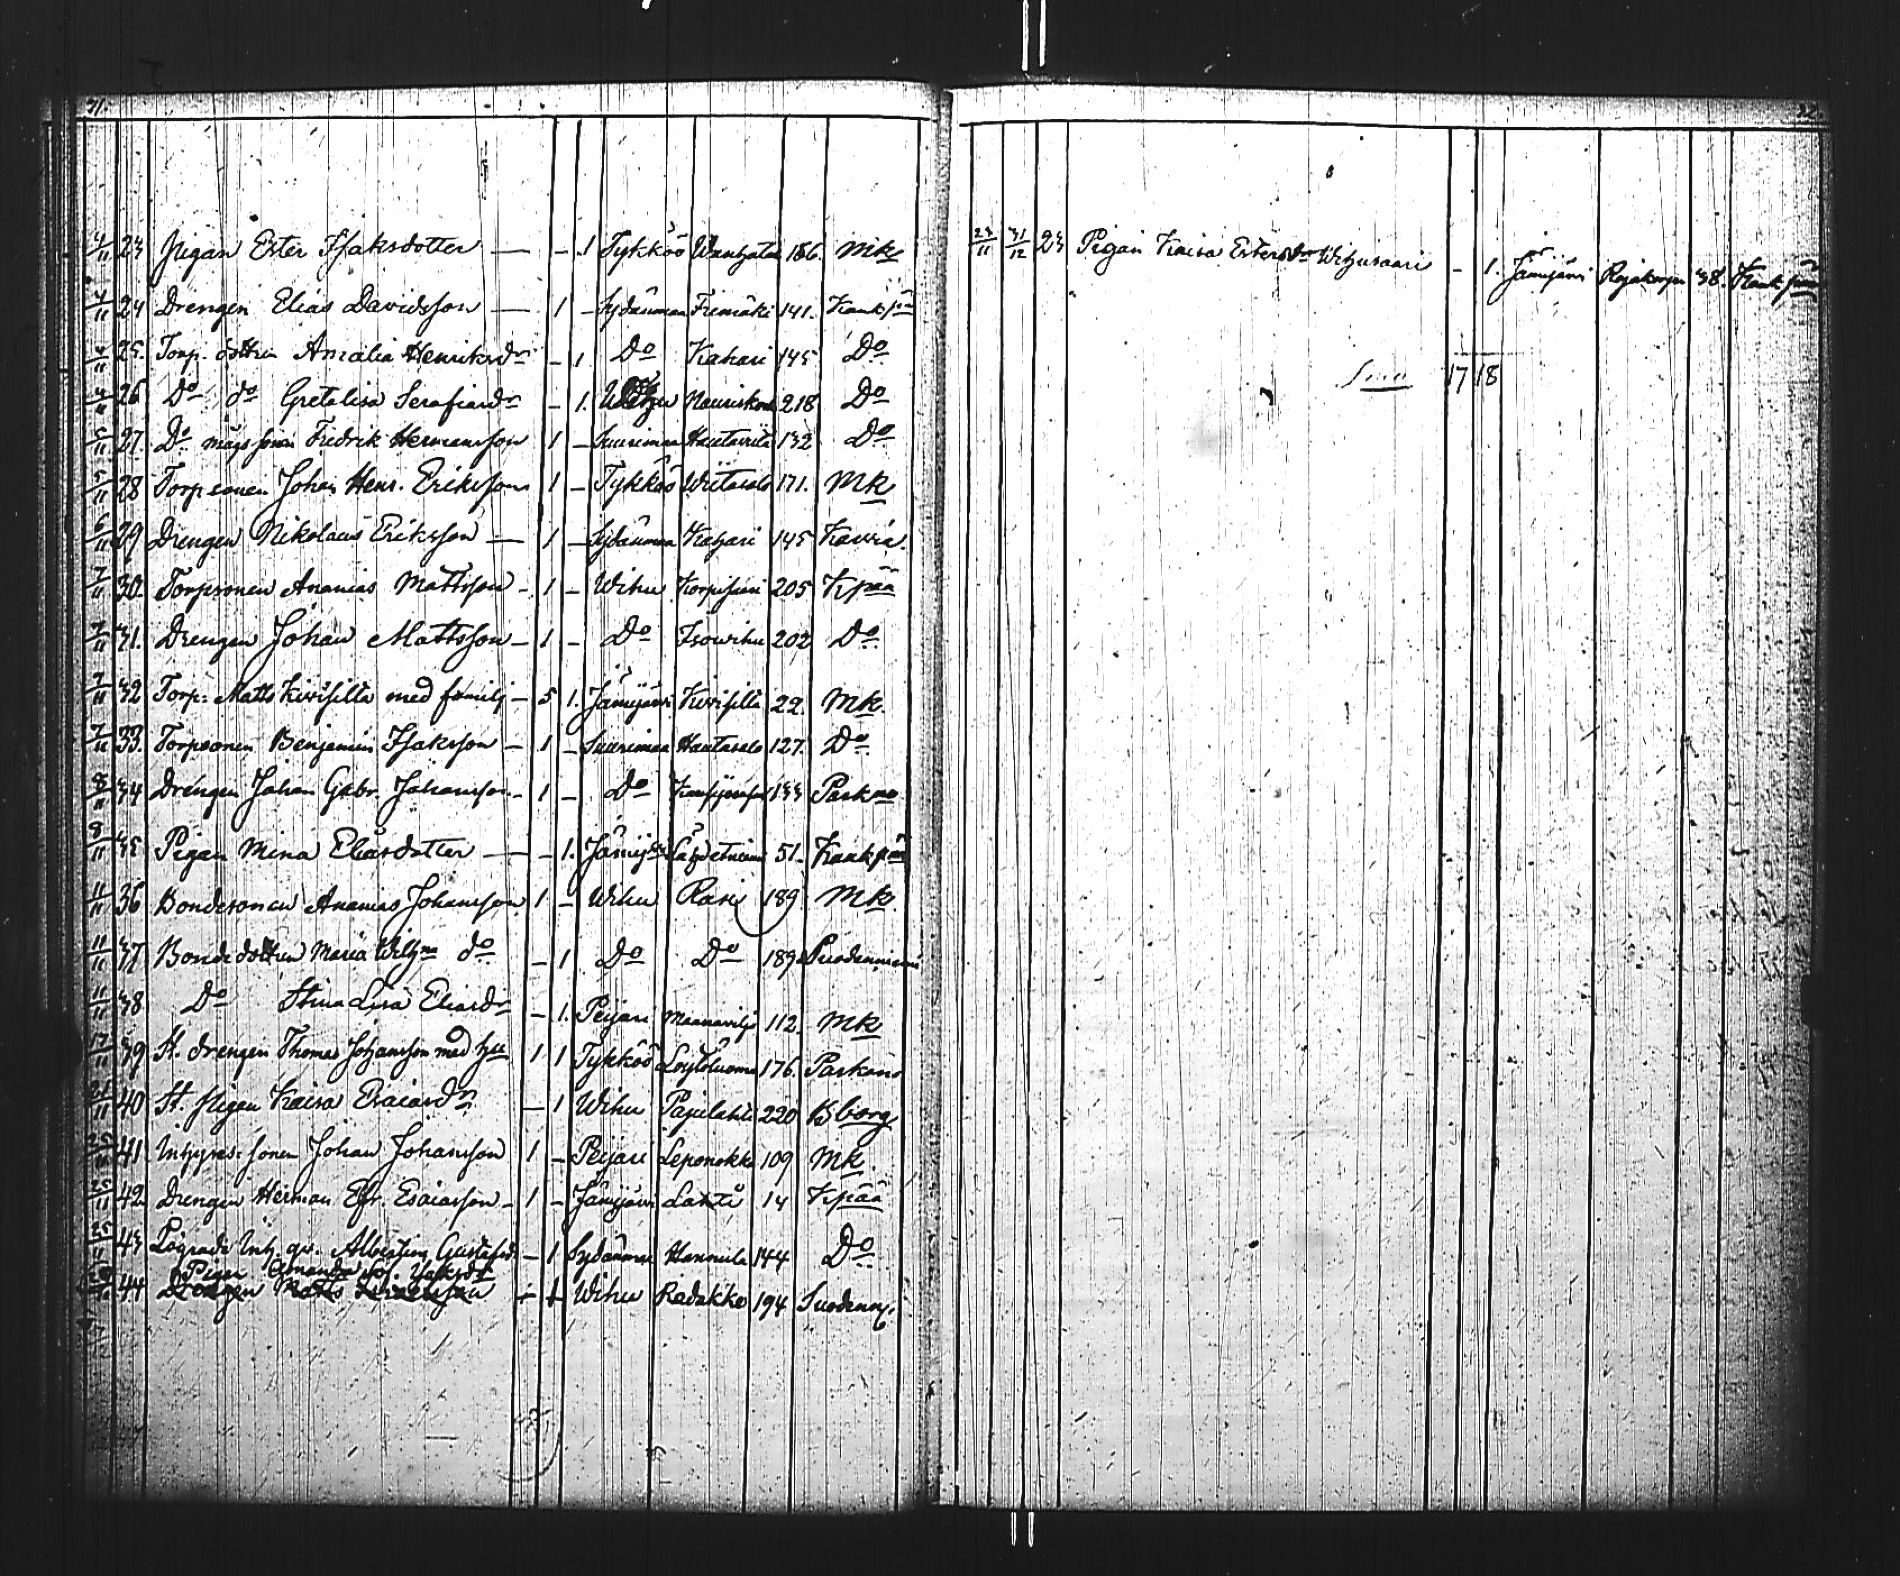 21.
4/11 23 Pigan Ester Isaksdotter — - 1 Tykköö Wanhatalo 186. Mk
4/11 24 Drengen Elias Davidsson — 1 - Sydänmaa Fiemäki 141. Kankpää
4/11 25. Torp. dottren Amalia Henriksdr - 1 Do Kahari 145 Do
4/11 26 Do do Gretalisa Serafiasdr - 1. Wihu 218 Do
5/11 27. Do mågs sonen Fredrik Hermansson 1 - Suurimaa 132 Do
5/11 28 Torpsonen Johan Henr. Eriksson 1 - Tykköö Wiitasalo 171. Mk
6/11 29 Drengen Nikolaus Eriksson — 1 - Sydänmaa Kahari 145 Kauvia.
7/11 30. Torpsonen Ananias Mattsson - 1 - Wihu 205 Kpää
7/11 31. Drengen Johan Mattsson - 1 - Do Isowihu 202 Do
7/11 32 Torp. Matts Kivisilta med familj - 5 1. Jämijärvi Kivisilta 22. Mk.
7/11 33. Torpsonen Benjamin Isaksson - 1 - Suurimaa Hautasalo 127. Do
8/11 34 Drengen Johan Gabr. Johansson - 1 - Do 133 Parkno
8/11 35 Pigan Mina Eliasdotter — - 1. Jämijvi Lähdetniemi 51. Kankpää
11/11 36 Bondesonen Ananias Johansson 1 - Wihu Rasi 189 Mk.
11/11 37 Bondedottren Maria Wilhna do - 1 Do Do 189 Suodenniemi
11/11 38 Do Stina Lisa Eliasdr - 1. Peijari Maanavilj 112. Mk
39 St. drengen Thomas Johansson med hu 1 1 Tykköö Löytöluoma 176. Parkano
40 St. pigan Kaisa Esaiasdr - 1 Wihu Pajulahti 220 Bborg
41. Inhyses sonen Johan Johansson 1 - Peijari Leponokka 109 Mk.
42 Drengen Herman Efr. Esaiasson - 1 - Jämijärvi Lahti 14 Kpää
43 Inh. qv. Albertina Gustafsdr - 1 Sydänmaa Hannula 144 Do
Pigan Amanda Sof. Isaksdr
44 Drengen Matts - 1 Wihu Radakko 194 Suodenn.
22.
23/11 31/12 23 Pigan Kaisa Estersdr Wihusaari - 1. Jämijärvi Rajakorpi 38. Kankpää
Sum 17 18